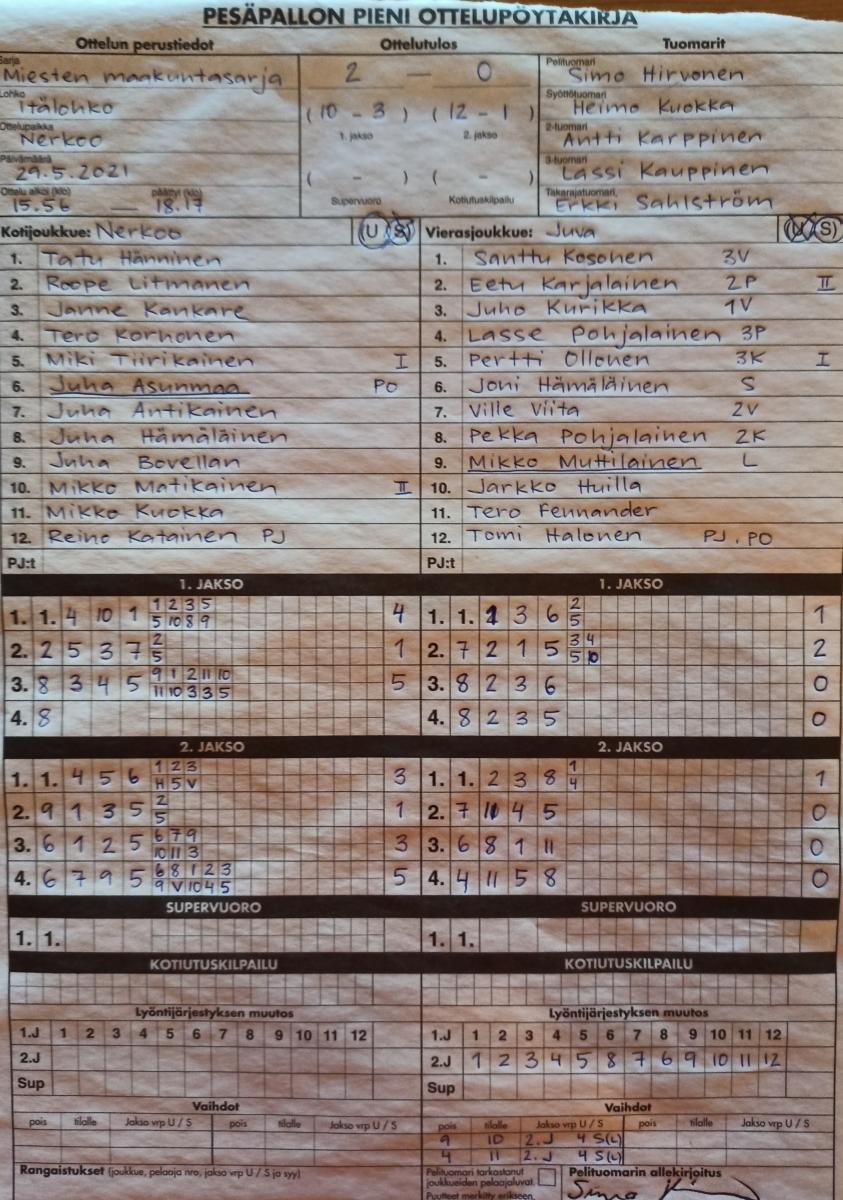 PESÄPALLON PIENI OTTELUPÖYTÄKIRJA
Ottelun perustiedot Ottelutulos Tuomarit
Sarja Miesten maakuntasarja 2 — 0 Pelituomari Simo Hirvonen
Lohko Itälohko ( 10 - 3 ) ( 12 - 1 ) Syöttötuomari Heimo Kuokka
Ottelupaikka Nerkoo 1. jakso 2. jakso 2-tuomari Antti Karppinen
Päivämäärä 29.5.2021 ( - ) ( - ) 3-tuomari Lassi Kauppinen
Ottelu alkoi (klo) 15.56 — päättyi (klo) 18.17 Supervuoro Kotiutuskilpailu Takarajatuomari Erkki Sahlström
Kotijoukkue: Nerkoo U S Vierasjoukkue: Juva U S
1. Tatu Hänninen 1. Santtu Kosonen 3V
2. Roope Litmanen 2. Eetu Karjalainen 2P II
3. Janne Kankare 3. Juho Kurikka 1V
4. Tero Korhonen 4. Lasse Pohjalainen 3P
5. Miki Tiirikainen I 5. Pertti Ollonen 3K I
6. Juha Asunmaa PO 6. Joni Hämäläinen S
7. Juha Antikainen 7. Ville Viita 2V
8. Juha Hämäläinen 8. Pekka Pohjalainen 2K
9. Juha Bovellan 9. Mikko Muttilainen L
10. Mikko Matikainen II 10. Jarkko Huilla
11. Mikko Kuokka 11. Tero Fennander
12. Reino Katainen PJ 12. Tomi Halonen PJ, PO
PJ:t PJ:t
1. JAKSO 1. JAKSO
1 2 3 5 2
1. 1. 4 10 1 4 1. 1. 1 3 6 1
5 10 8 9 5
2 3 4
2. 2 5 3 7 1 2. 7 2 1 5 2
5 5 10
9 1 2 11 10
3. 8 3 4 5 5 3. 8 2 3 6 0
11 10 3 3 5
4. 8 4. 8 2 3 5 0
2. JAKSO 2. JAKSO
1 2 3 1
1. 1. 4 5 6 3 1. 1. 2 3 8 1
H 5 V 4
2
2. 9 1 3 5 1 2. 7 11 4 5 0
5
6 7 9
3. 6 1 2 5 3 3. 6 8 1 11 0
10 11 3
6 8 1 2 3
4. 6 7 9 5 5 4. 4 11 5 8 0
9 V 10 4 5
SUPERVUORO SUPERVUORO
1. 1. 1. 1.
KOTIUTUSKILPAILU KOTIUTUSKILPAILU
Lyöntijärjestyksen muutos Lyöntijärjestyksen muutos
1.J 1 2 3 4 5 6 7 8 9 10 11 12 1.J 1 2 3 4 5 6 7 8 9 10 11 12
2.J 2.J 1 2 3 4 5 8 7 6 9 10 11 12
Sup Sup
Vaihdot Vaihdot
pois tilalle Jakso vrp U / S pois tilalle Jakso vrp U / S pois tilalle Jakso vrp U / S pois tilalle Jakso vrp U / S
9 10 2. J 4 S(L)
4 11 2. J 4 S(L)
Rangaistukset (joukkue, pelaaja nro, jakso vrp U / S ja syy) Pelituomari tarkastanut Pelituomarin allekirjoitus
joukkueiden pelaajaluvat.
Puutteet merkitty erikseen. Simo